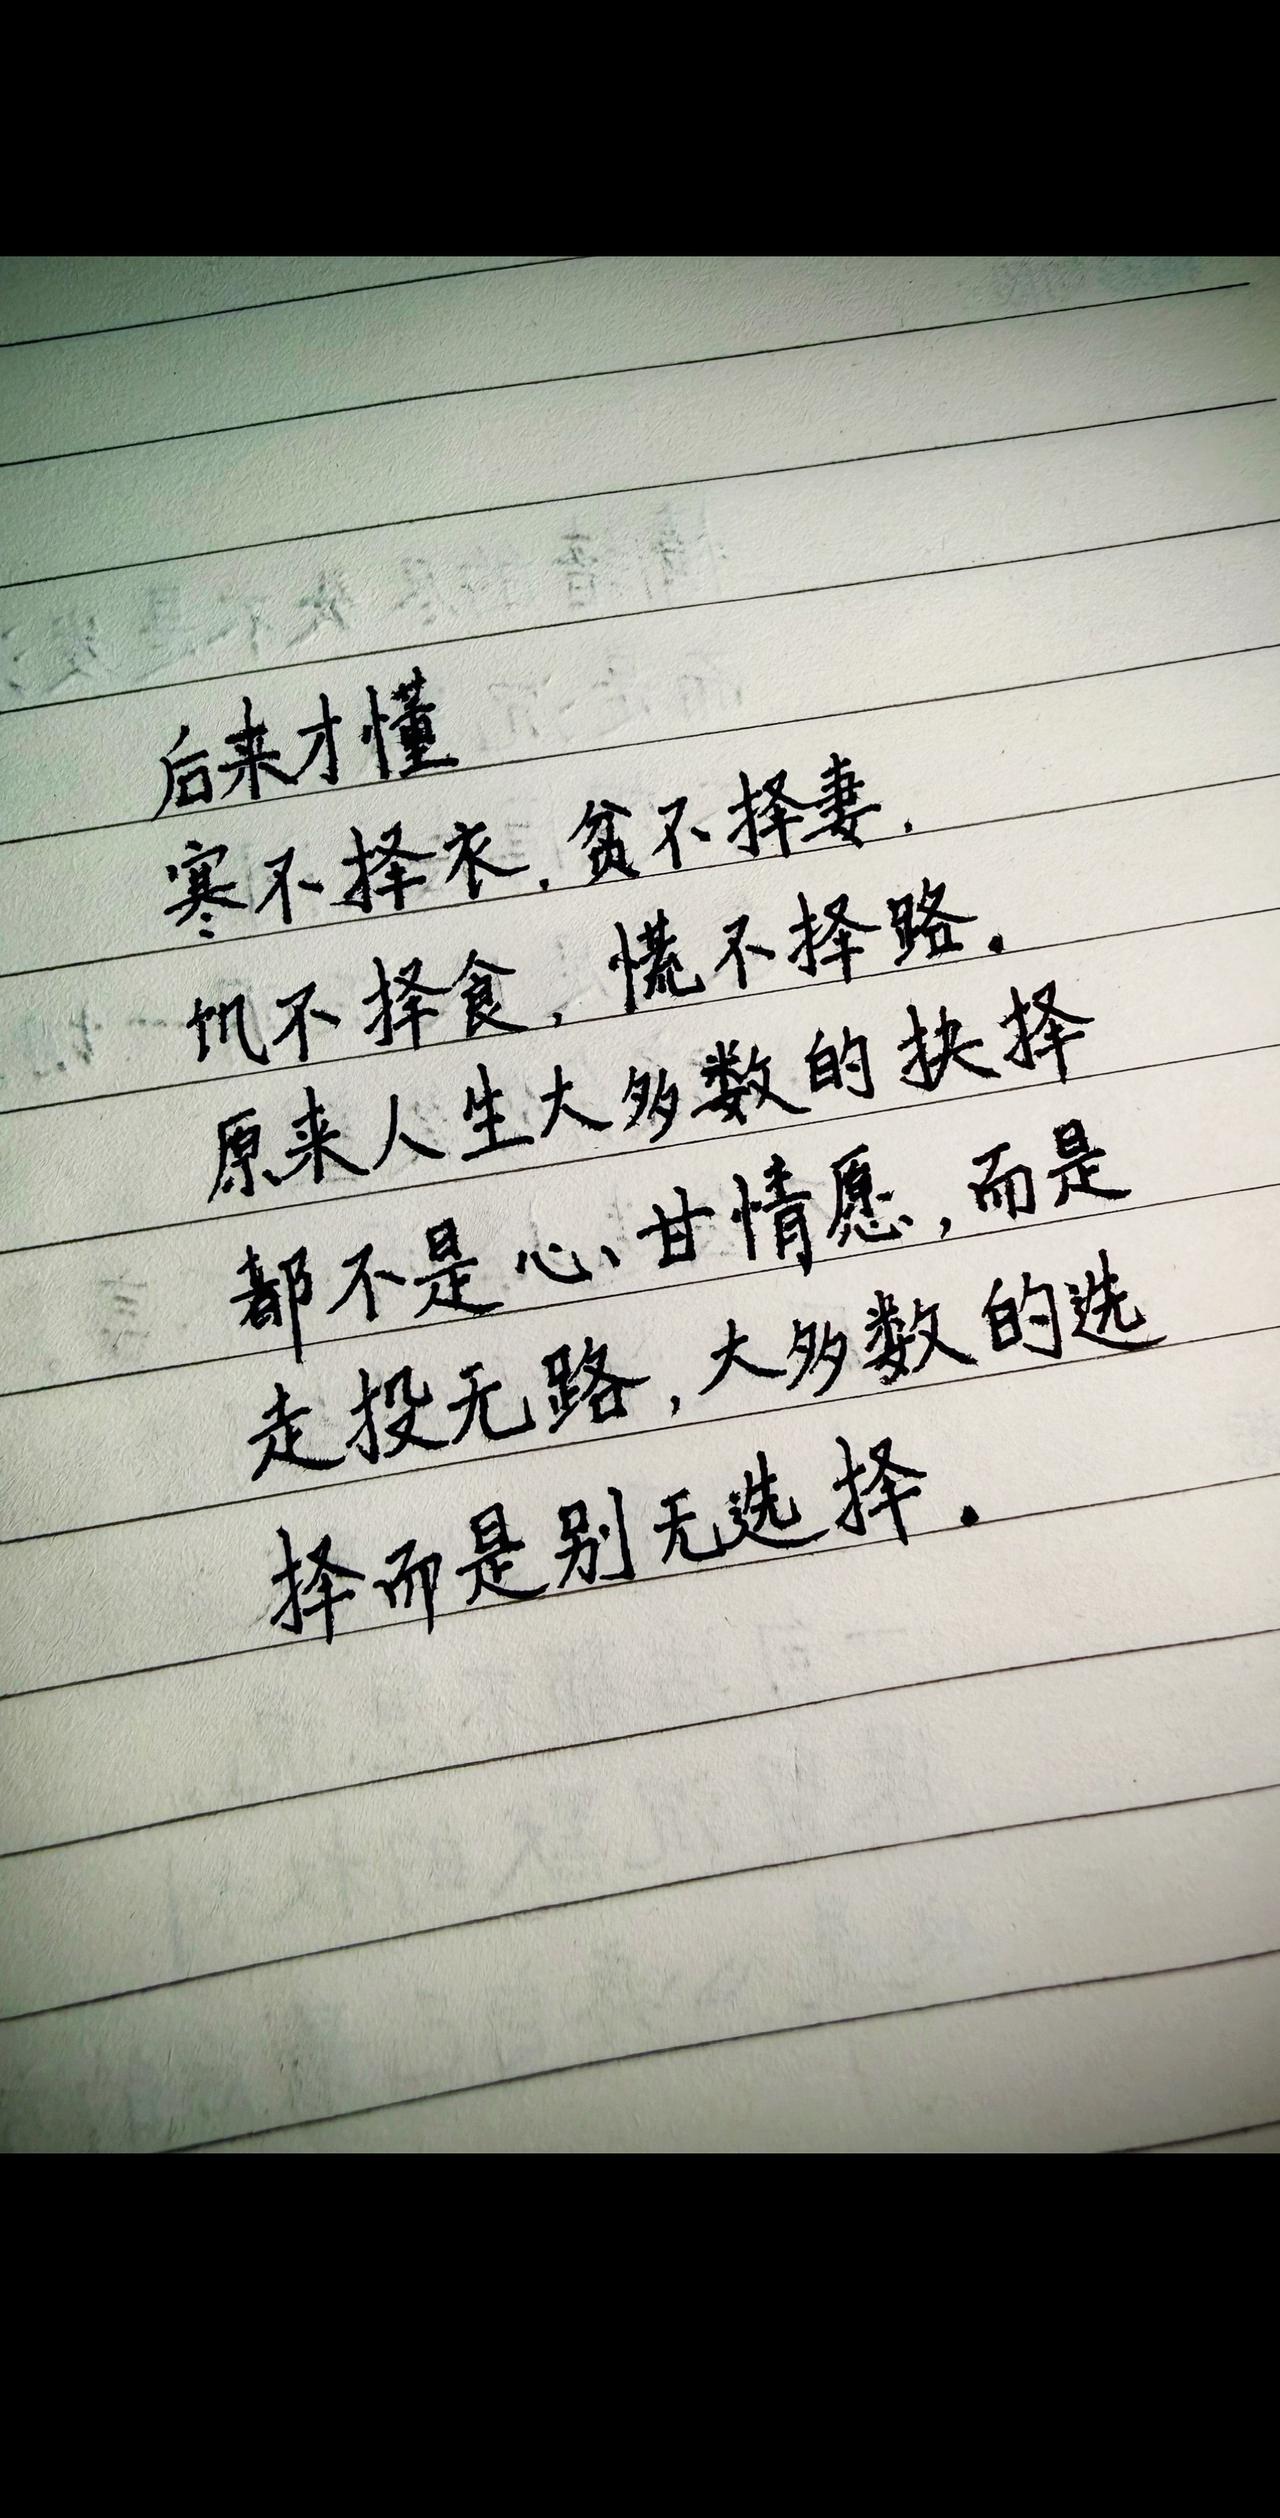 后来才懂
寒不择衣.贫不择妻.
饥不择食,慌不择路.
原来人生大多数的抉择
都不是心甘情愿,而是
走投无路,大多数的选
择而是别无选择.